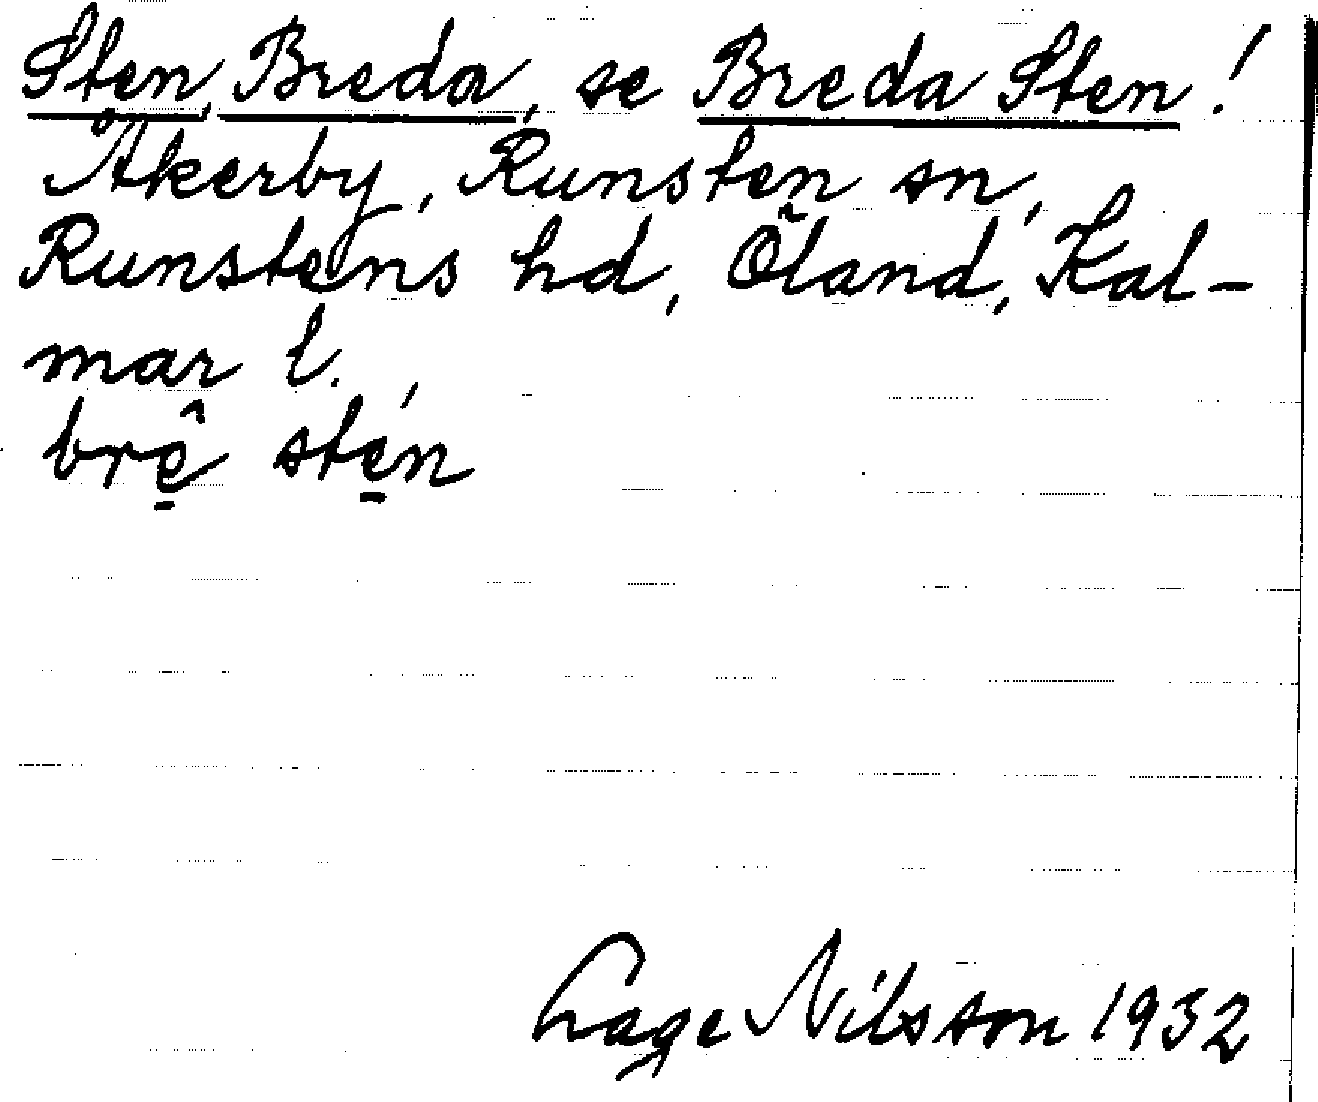 Sten, Breda, se Breda Sten!
Åkerby, Runsten sn,
Runstens hd, Öland, Kal-
mar l.
brê̱ sté̱n
Lage Nilsson 1932